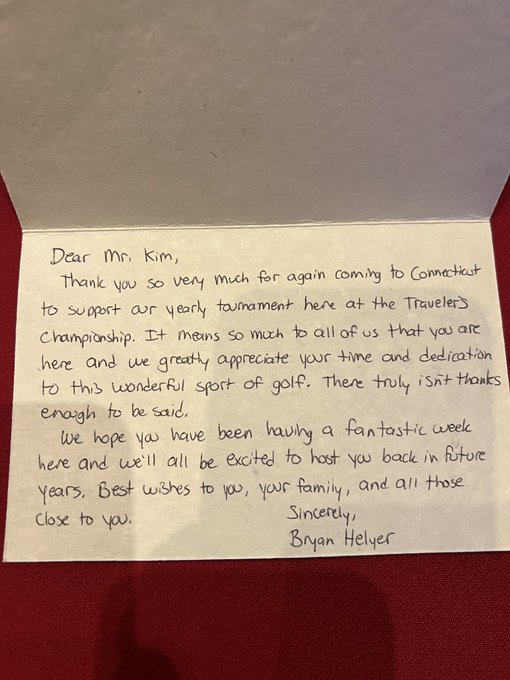 Dear Mr. Kim,
Thank you so very much for again coming to Connecticut
to support our yearly tournament here at the Travelers
Championship. It means so much to all of us that you are
here and we greatly appreciate your time and dedication
to this wonderful sport of golf. There truly isn't thanks
enough to be said.
We hope you have been having a fantastic week
here and we'll all be excited to host you back in future
years. Best wishes to you, your family, and all those
close to you.
Sincerely,
Bryan Helyer